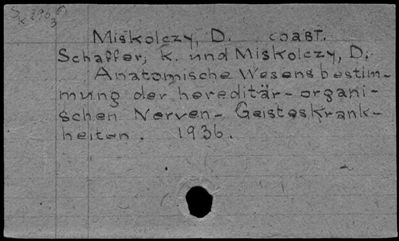 Miskolczy, D. соавт.
Schaffer, K. und Miskolczy, D.
Anatomische Wesensbestim-
mung der hereditär-organi-
schen Nerven- Geisteskrank-
heiten. 1936.